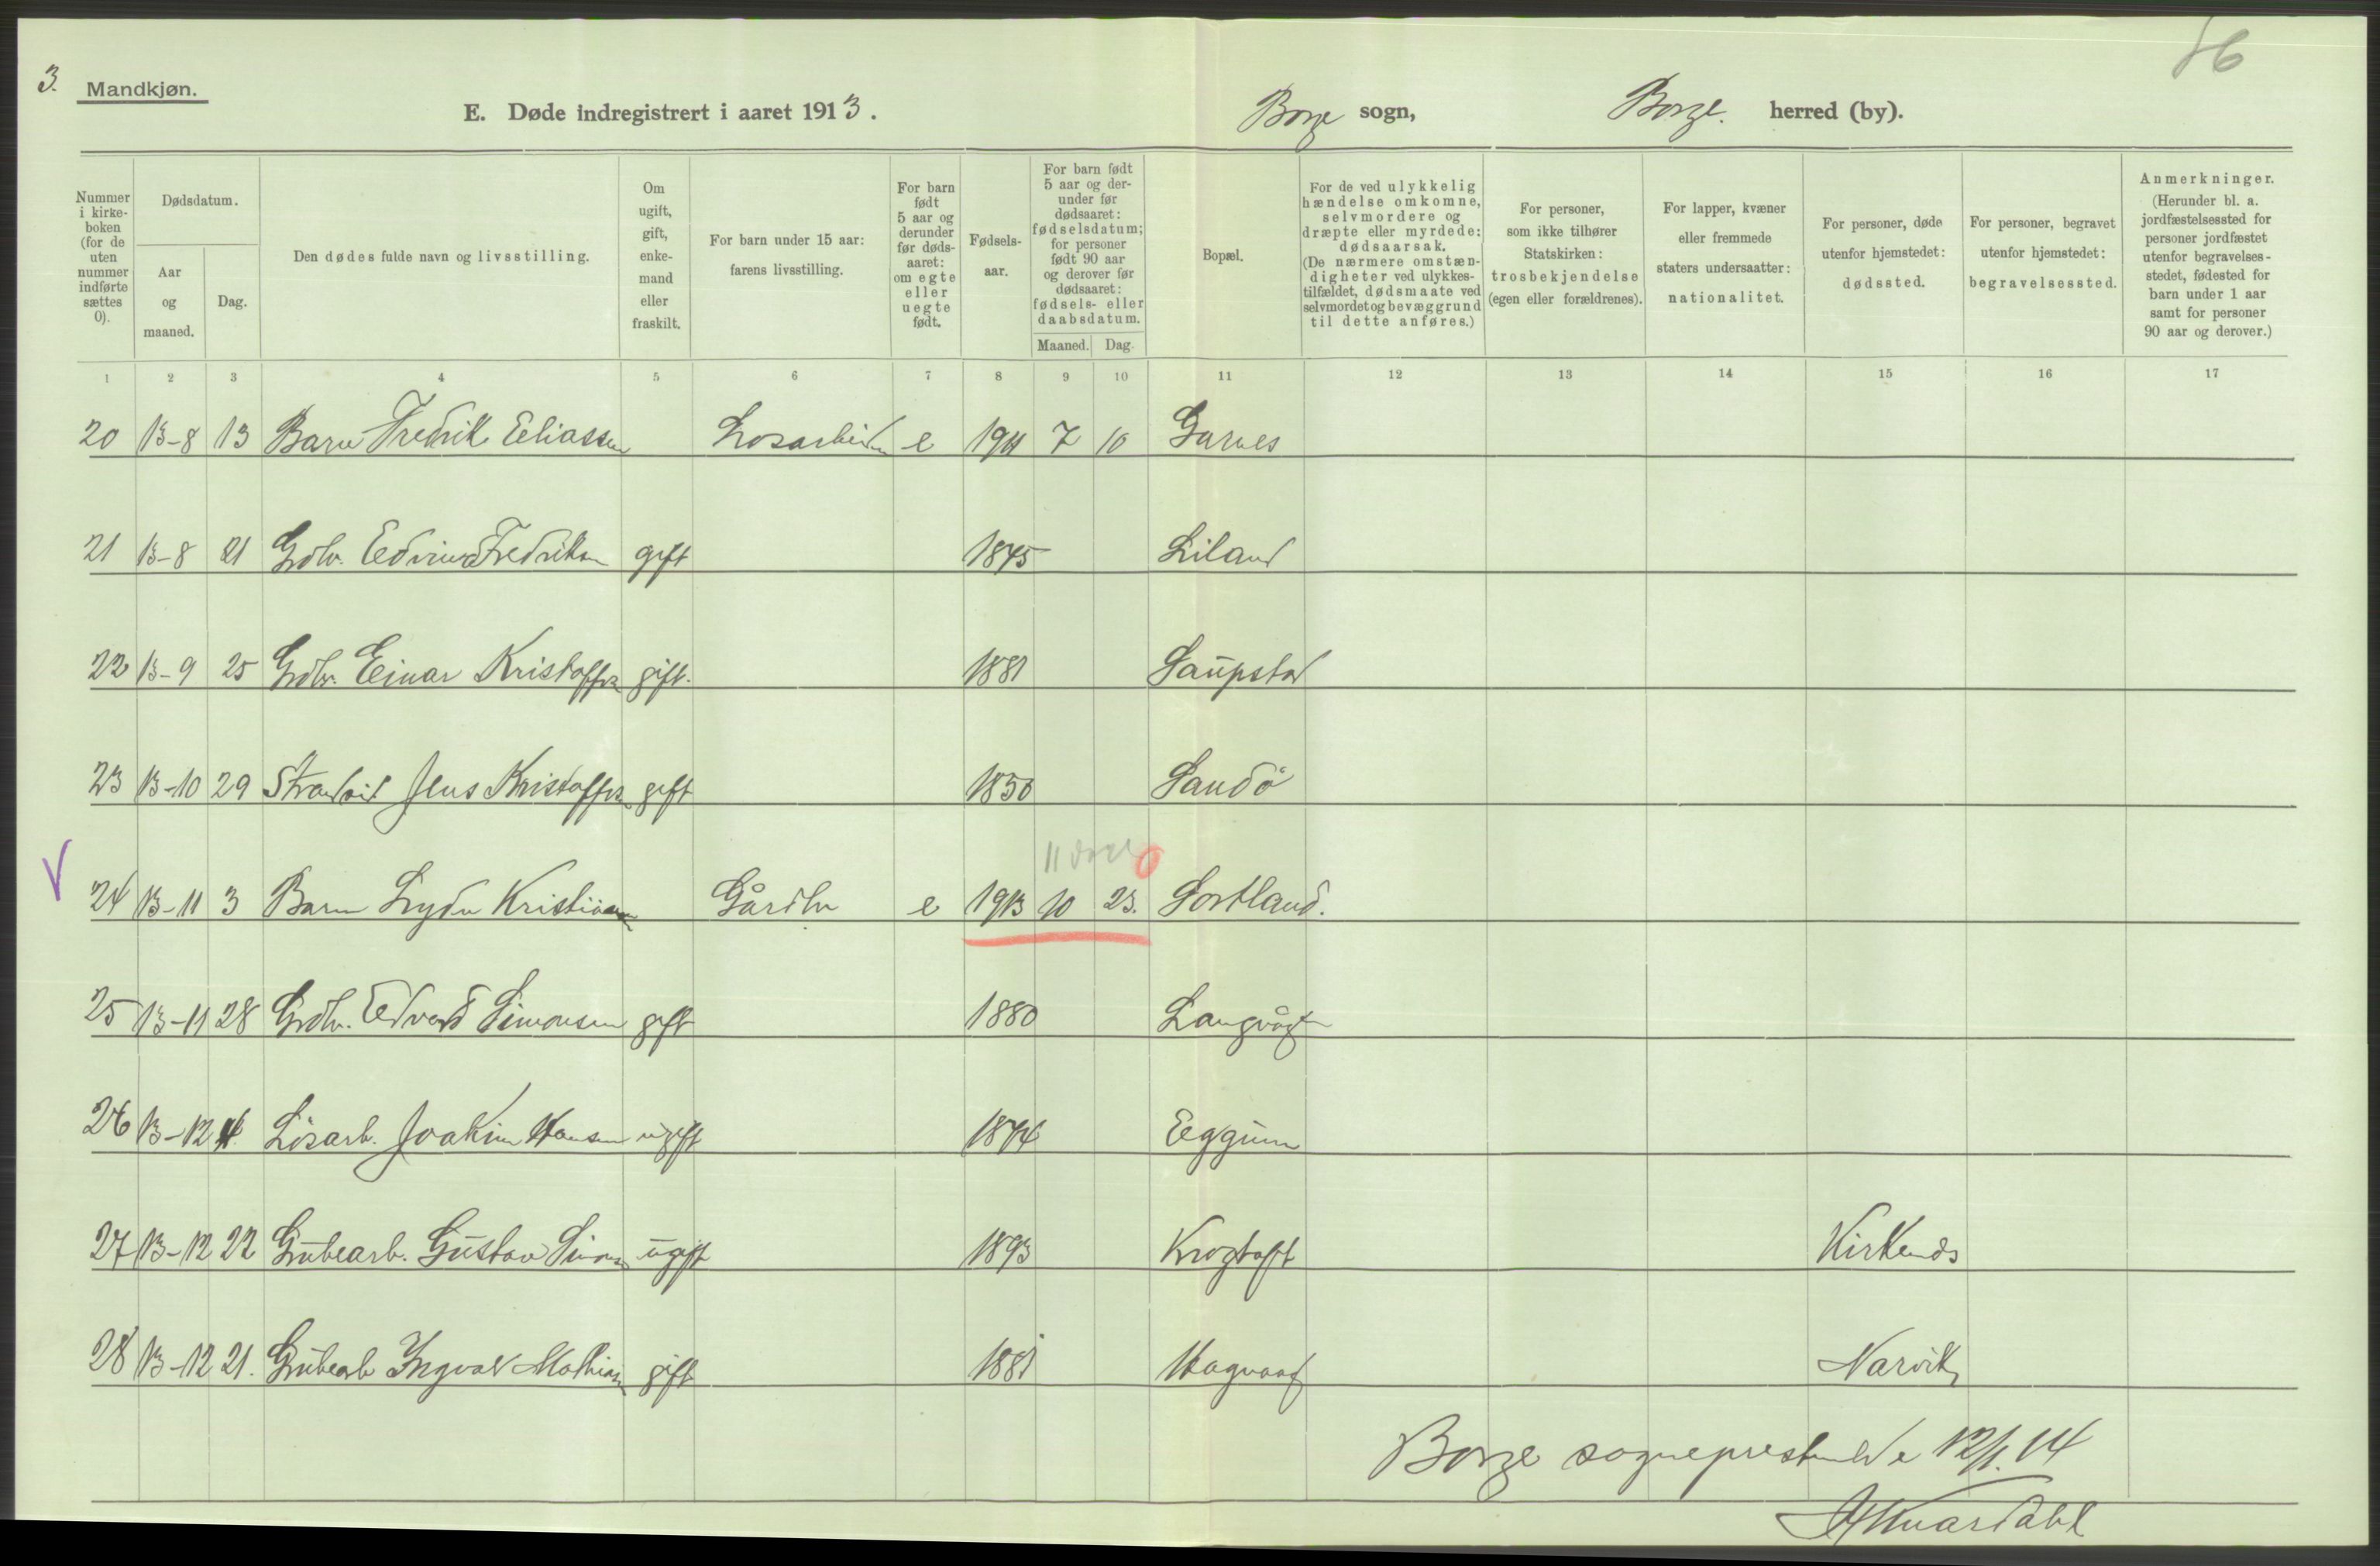 3. Mandkjøn.
86
E. Døde indregistrert i aaret 1913. Borge sogn, Borge. herred (by).
Nummer i kirkeboken (for de uten nummer indførte sættes 0).
Dødsdatum.
Aar og maaned.
Dag.
Den dødes fulde navn og livsstilling.
Om ugift, gift, enkemand eller fraskilt.
For barn under 15 aar: farens livsstilling.
For barn født 5 aar og derunder før dødsaaret: om egte eller uegte født.
Fødselsaar.
For barn født 5 aar og derunder før dødsaaret: fødselsdatum; for personer født 90 aar og derover før dødsaaret: fødsels- eller daabsdatum.
Maaned. Dag.
Bopæl.
For de ved ulykkelig hændelse omkomne, selvmordere og dræpte eller myrdede: dødsaarsak. (De nærmere omstændigheter ved ulykkestilfældet, dødsmaate ved selvmordet og bevæggrund til dette anføres.)
For personer, som ikke tilhører Statskirken: trosbekjendelse (egen eller forældrenes).
For lapper, kvæner eller fremmede staters undersaatter: nationalitet.
For personer, døde utenfor hjemstedet: dødssted.
For personer, begravet utenfor hjemstedet: begravelsessted.
Anmerkninger. (Herunder bl. a. jordfæstelsessted for personer jordfæstet utenfor begravelsesstedet, fødested for barn under 1 aar samt for personer 90 aar og derover.)
1 2 3 4 5 6 7 8 9 10 11 12 13 14 15 16 17
20 13-8 13 Barn Fredrik Eliassen Losarbeider e 1911 7 10 Garnes
21 13-8 21 Grdbr. Edvin Fredriksen gift 1845 Liland
22 13-9 25 Grdbr. Einar Kristoffersen gift. 1881 Saupstad
23 13-10 29 Strandsid Jens Kristoffersen gift 1850 Sandö
11 dage 0
24 13-11 3 Barn Lyder Kristiansen Gårdbr e 1913 10 23. Sortland.
25 13-11 28 Grdbr. Edvard Simonsen gift 1880 Langvågen
26 13-12 4 Lösarb. Joakim Hansen ugift 1874 Eggum
27 13-12 22 Grubearb. Gustav Simonsen ugift 1893 Krogtoft Kirkenes
28 13-12 21. Grubearb Ingvald Mathiasen gift 1881 Hagvaag Narvik
Borge sogneprestembede 12/1. 14